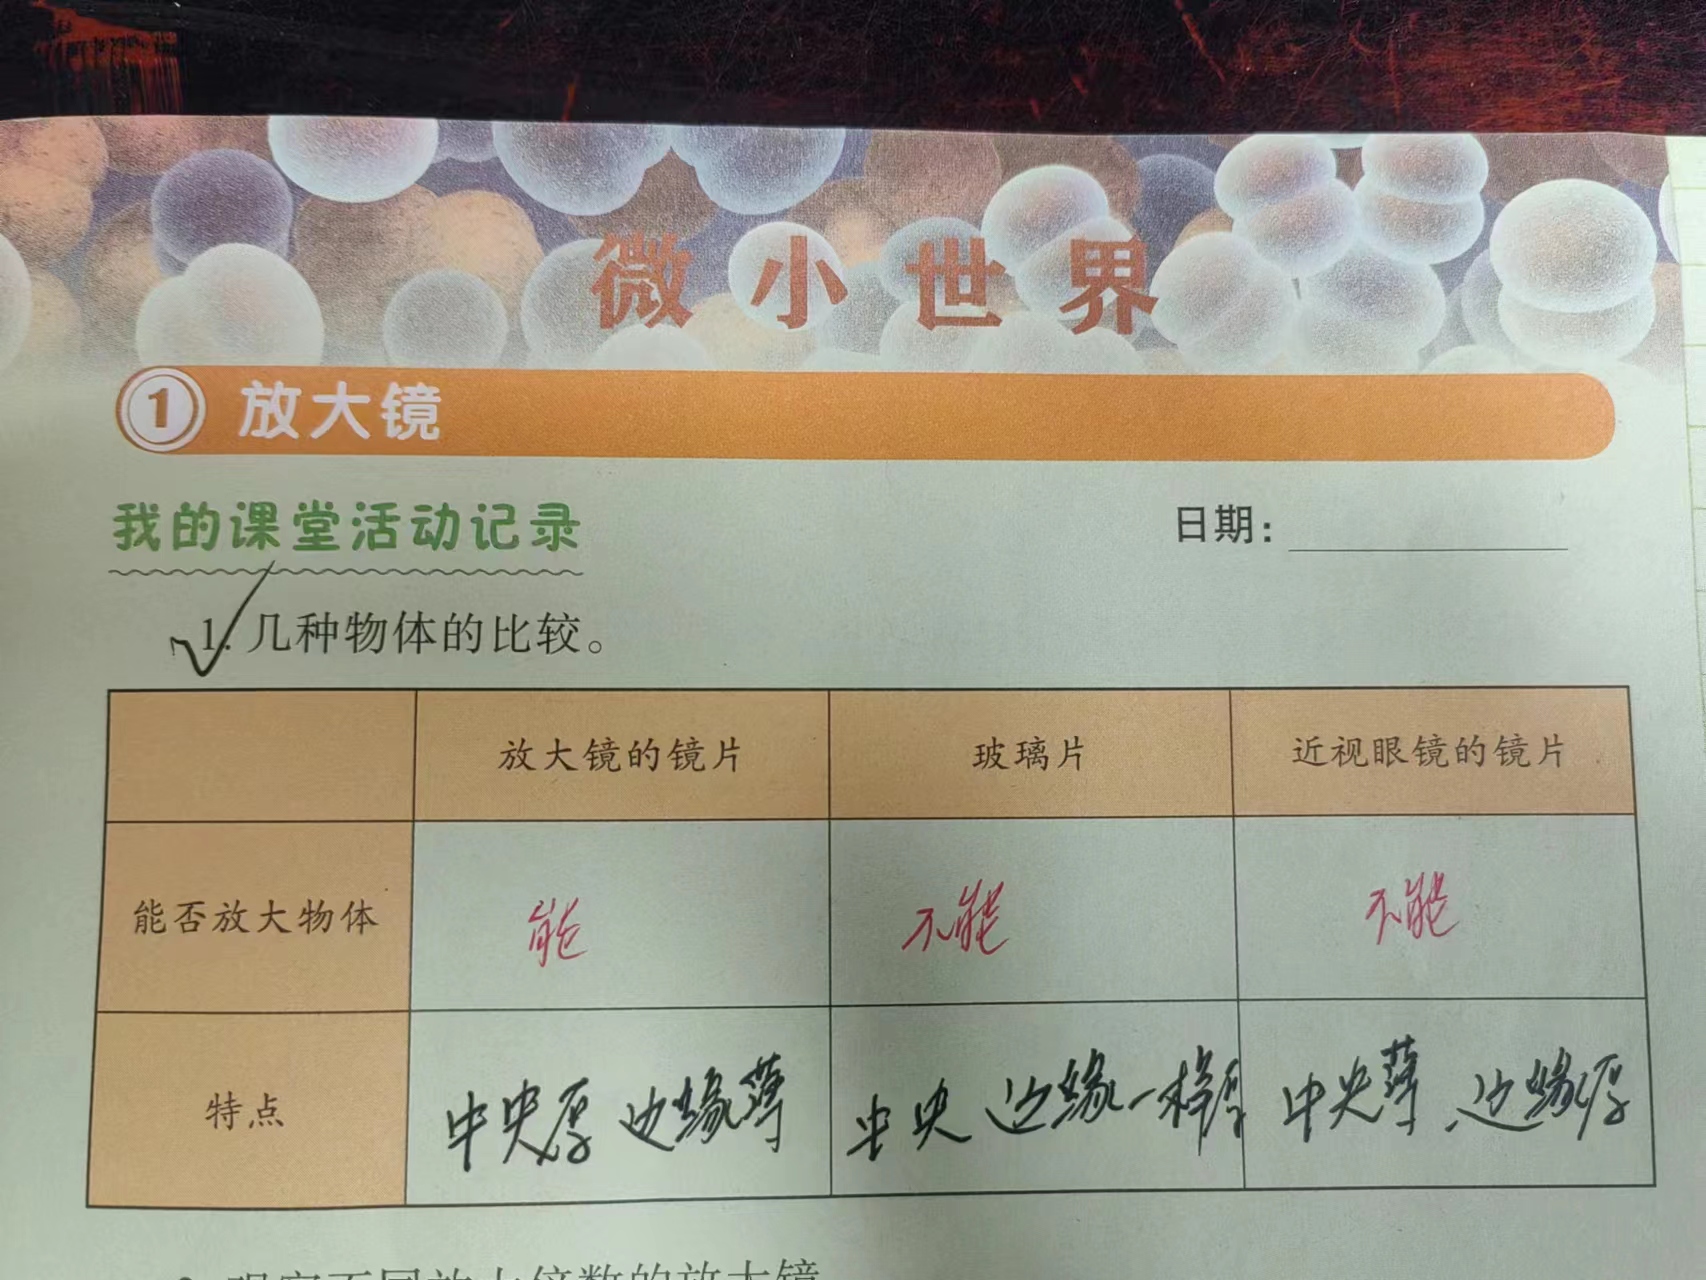 微小世界
1 放大镜
我的课堂活动记录 日期：
1. 几种物体的比较。
放大镜的镜片 玻璃片 近视眼镜的镜片
能否放大物体 能 不能 不能
特点 中央厚 边缘薄 中央 边缘一样厚 中央薄、边缘厚
2. 观察不同放大倍数的放大镜